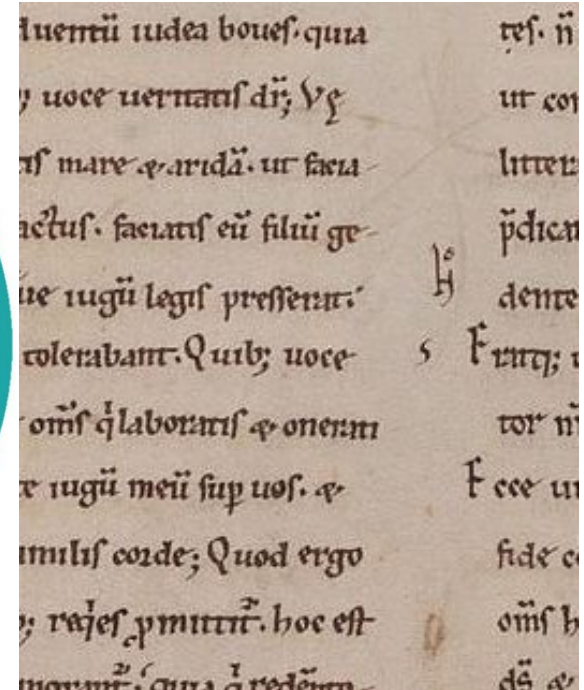 duentū iudea boues. quia
uoce ueritatis dr̄; Vę
mare & aridā. ut facia
actus. faciatis eū filiū ge
iugū legis presserat.
tolerabant. Quib; uoce
om̄s q̇ laboratis & onerati
iugū meū sup uos. &
umilis corde; Quod ergo
req̇es ꝓmittit᷑. hoc est
quia
tes. n̄
ut con
litter
p̄dica
dente
s
Fratr;
tor nr̄
Ecce
fide c
om̄s h
ds̄ &